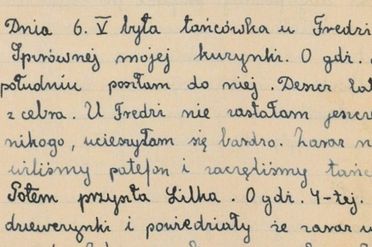 Dnia 6. V była tańcówka u Fredri
Spirównej mojej kuzynki. O gdz.
południu poszłam do niej. Deszcz lał
z cebra. U Fredri nie zastałam jeszcze
nikogo, ucieszyłam się bardzo. Zaraz n
wiliśmy patefon i zaczęliśmy tańc
Potem przyszła Lilka. O gdz. 4-tej.
dziewczynki i powiedziały że zaraz w